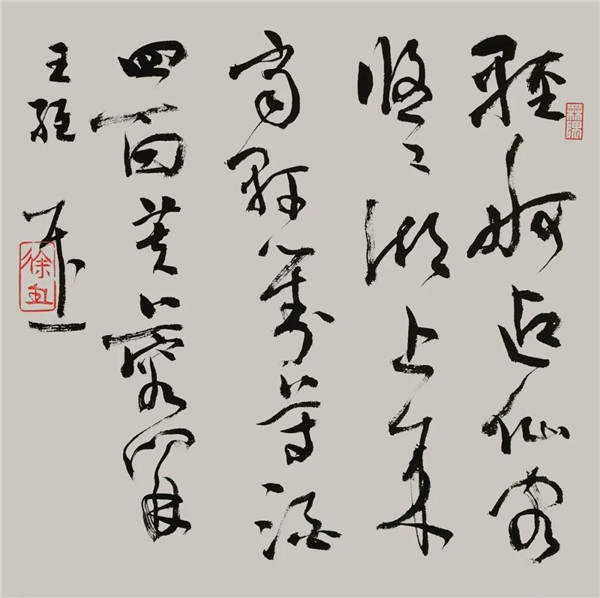 輕舸迎仙客
悠々湖上来
當軒對尊酒
四面芙蓉開
王維
徐